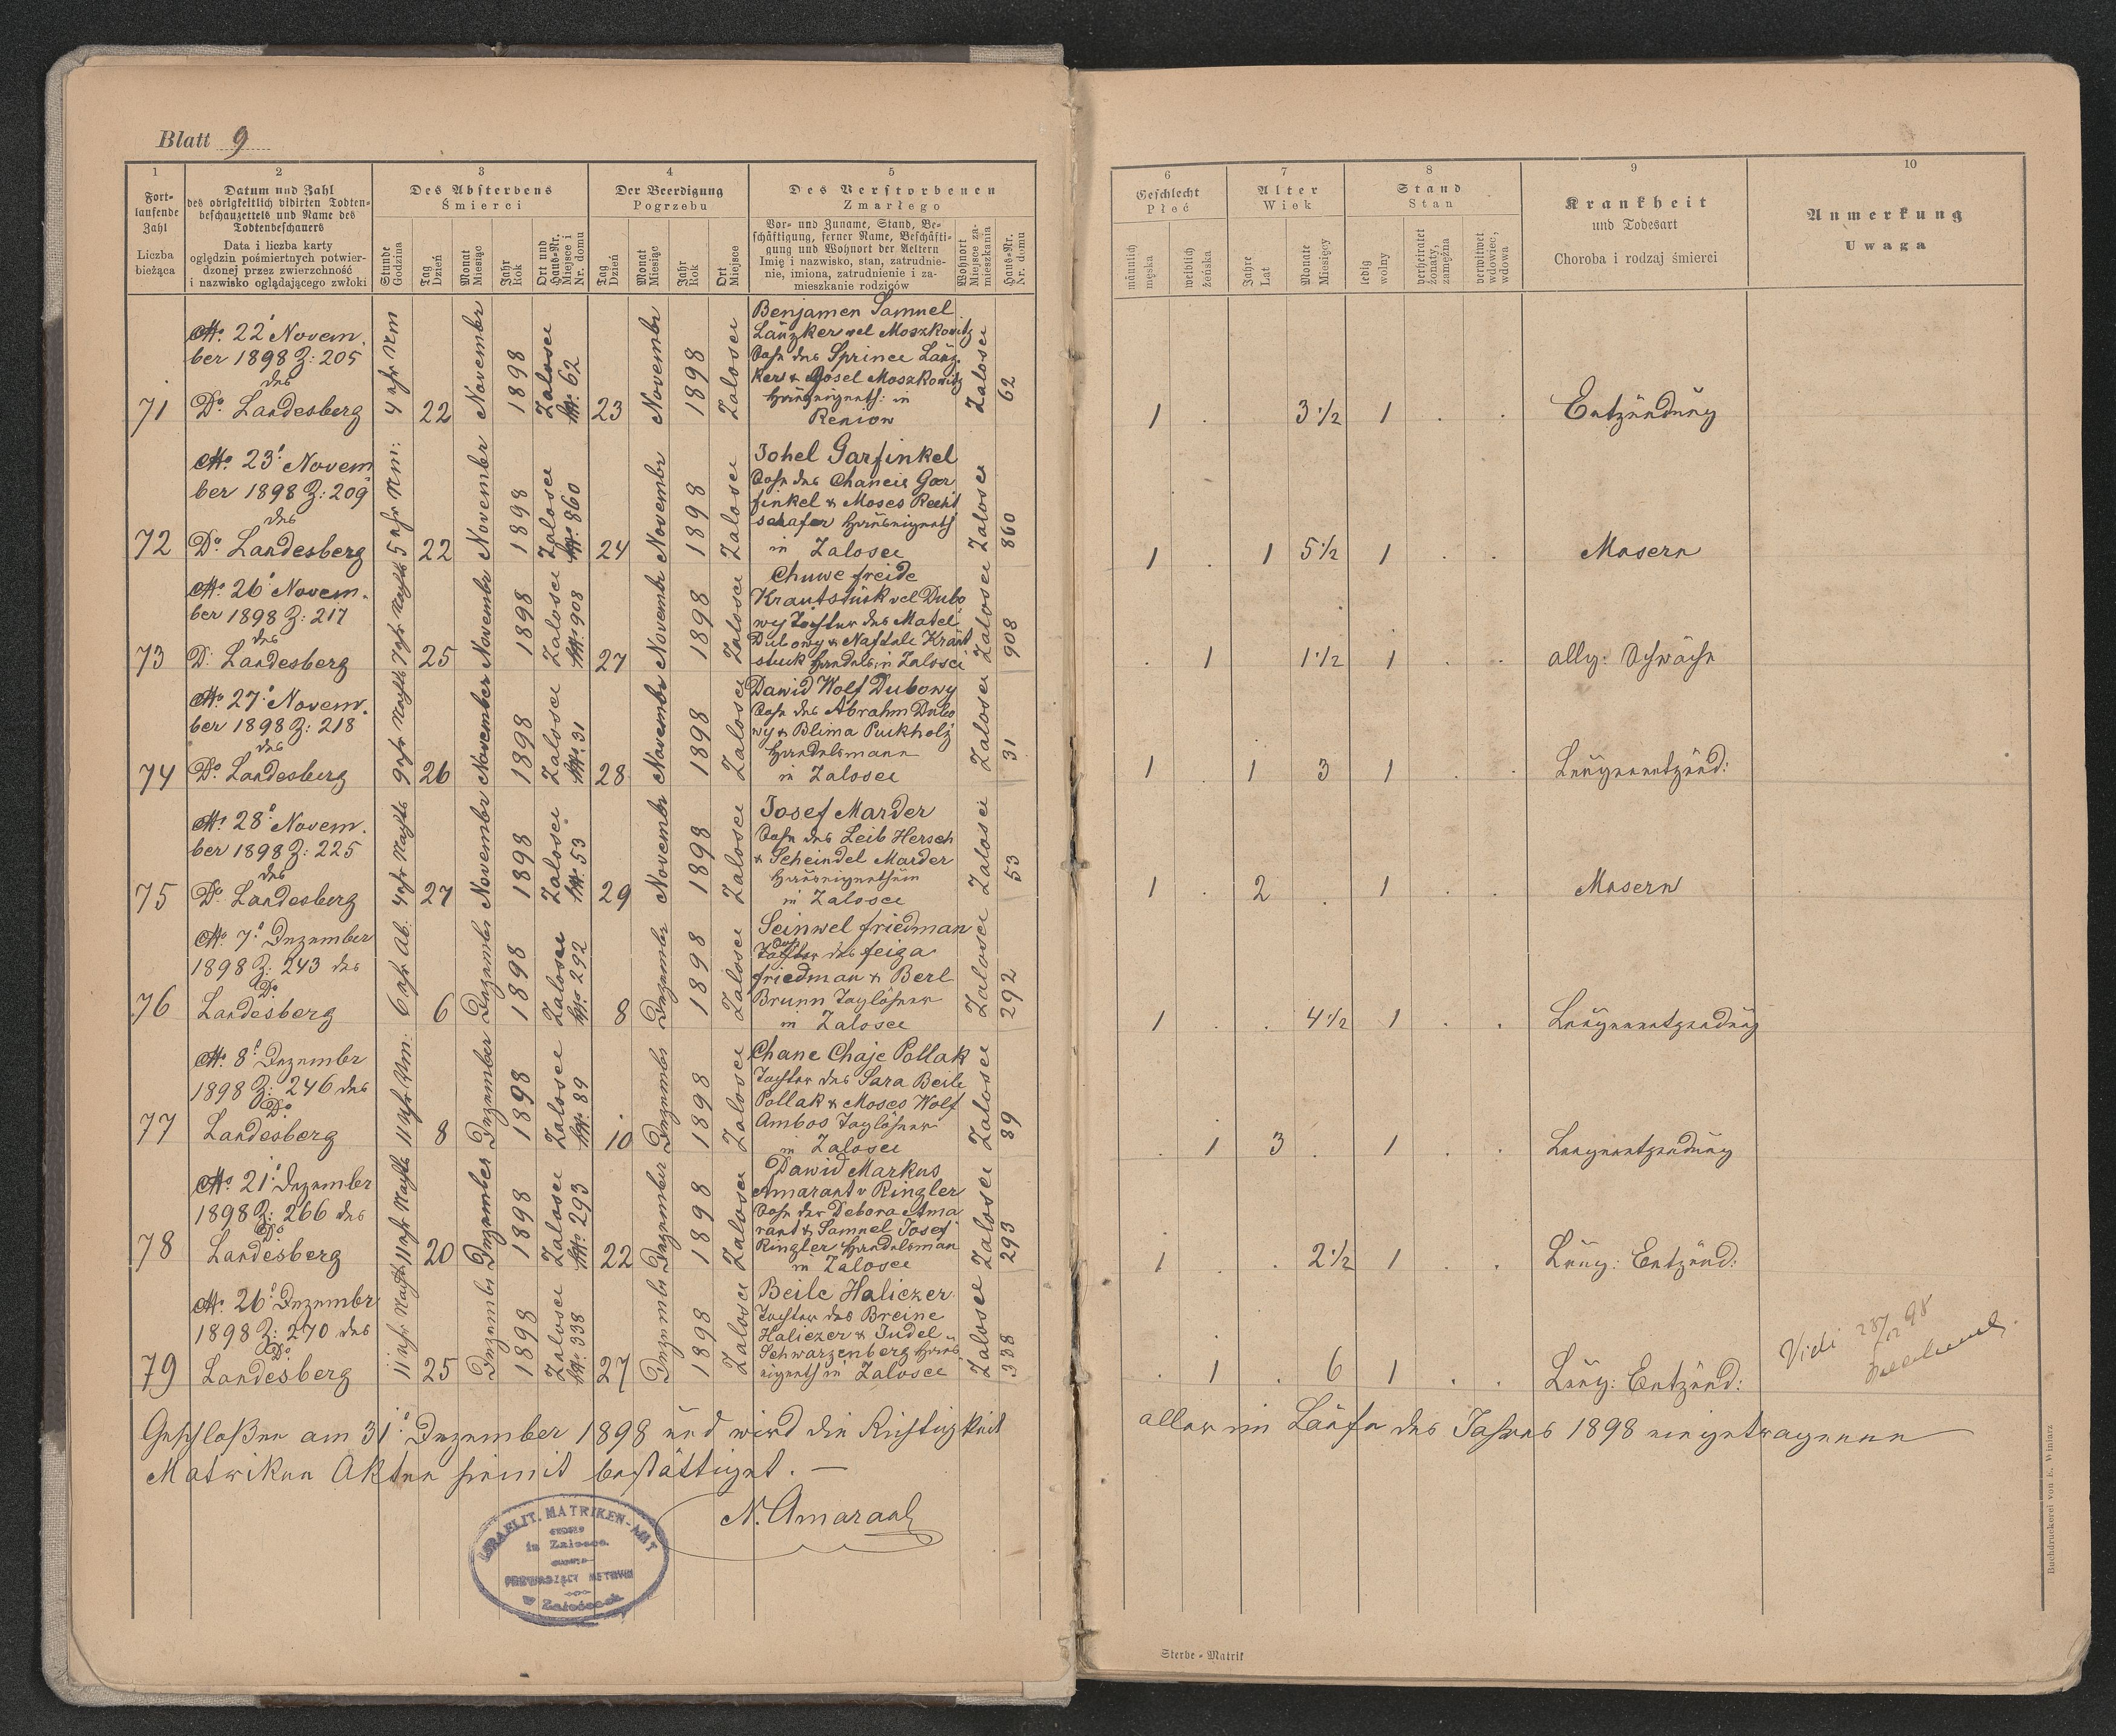 Blatt 9
1
Fort-
laufende
Zahl
Liczba
bieżąca
2
Datum und Zahl
des obrigkeitlich vidirten Todten-
beschauzettels und Name des
Todtenbeschauers
Data i liczba karty
oględzin pośmiertnych potwier-
dzonej przez zwierzchność
i nazwisko oglądającego zwłoki
3
Des Absterbens
Śmierci
Stunde
Godzina
Tag
Dzień
Monat
Miesiąc
Jahr
Rok
Ort und
Haus-Nr.
Miejsce i
Nr. domu
4
Der Beerdigung
Pogrzebu
Tag
Dzień
Monat
Miesiąc
Jahr
Rok
Ort
Miejsce
5
Des Verstorbenen
Zmarłego
Vor- und Zuname, Stand, Be-
schäftigung, ferner Name, Beschäfti-
gung und Wohnort der Aeltern
Imię i nazwisko, stan, zatrudnie-
nie, imiona, zatrudnienie i za-
mieszkanie rodziców
Wohnort
Miejsce za-
mieszkania
Haus-Nr.
Nr. domu
6
Geschlecht
Płeć
männlich
męska
weiblich
żeńska
7
Alter
Wiek
Jahre
Lat
Monate
Miesięcy
8
Stand
Stan
ledig
wolny
verheiratet
żonaty,
zamężna
verwitwet
wdowiec,
wdowa
9
Krankheit
und Todesart
Choroba i rodzaj śmierci
10
Anmerkung
Uwaga
71
22 Novem.
ber 1898 Z: 205
des
Dr. Landesberg
4 uhr Nm
22
November
1898
Zalosce
62
23
November
1898
Zalosce
Benjamen Samuel
Länzker vel Moszkowitz
Sohn des Sprince Länz
ker & Josel Moszkowitz
Hauseigenth: in
Reniow
Zalosce
62
1 . 3 1/2 1 . .
Entzündung
72
23 Novem
ber 1898 Z: 209
des
Dr. Landesberg
5 uhr Nm:
22
November
1898
Zalosce
860
24
November
1898
Zalosce
Johel Garfinkel
Sohn des Chancie Gar
finkel & Moses Recht
schafer Hauseigenth
in Zalosce
Zalosce
860
1 . 1 5 1/2 1 . .
Masern
73
26 Novem.
ber 1898 Z: 217
des
D: Landesberg
7 uhr Nachts
25
November
1898
Zalosce
908
27
November
1898
Zalosce
Chuwe Freide
Krautstück vel Dubo
wy Tochter des Matel
Dubowy & Naftale Kraut
stuck Handels: in Zalosce
Zalosce
908
. 1 1 1/2 1 . .
allg: Schwäche
74
27 Novem.
ber 1898 Z: 218
des
Dr. Landesberg
9 uhr Nachts
26
November
1898
Zalosce
31
28
November
1898
Zalosce
Dawid Wolf Dubowy
Sohn des Abrahm Dubo
wy & Blima Puckholz
Handelsmann
in Zalosce
Zalosce
31
1 . 1 3 1 . .
Lungenentzünd:
75
28 Novem.
ber 1898 Z: 225
des
Dr. Landesberg
4 uhr Nachts
27
November
1898
Zalosce
53
29
November
1898
Zalosce
Josef Marder
Sohn des Leib Hersch
& Scheindel Marder
Hauseigenthüm
in Zalosce
Zalosce
53
1 . 2 . 1 . .
Masern
76
7 Dezember
1898 Z: 243 des
Dr
Landesberg
6 uhr Ab.
6
Dezember
1898
Zalosce
292
8
Dezember
1898
Zalosce
Seinwel Friedman
Sohn
Tochter des Feiga
Friedman & Berl
Brunn Taglöhner
in Zalosce
Zalosce
292
1 . . 4 1/2 1 . .
Lungenentzündung
77
8 Dezember
1898 Z: 246 des
Dr
Landesberg
11 uhr Vm.
8
Dezember
1898
Zalosce
89
10
Dezember
1898
Zalosce
Chane Chaje Pollak
Tochter des Sara Beile
Pollak & Moses Wolf
Ambos Taglöhner
in Zalosce
Zalosce
89
. 1 3 . 1 . .
Lungenentzündung
78
21 Dezember
1898 Z: 266 des
Dr
Landesberg
11 uhr Nachts
20
Dezember
1898
Zalosce
293
22
Dezember
1898
Zalosce
Dawid Markus
Amarant v Ringler
Sohn der Debora Ama
rant & Samuel Josef
Ringler Handelsman
in Zalosce
Zalosce
293
1 . . 2 1/2 1 . .
Lung: Entzünd:
79
26 Dezember
1898 Z: 270 des
Dr
Landesberg
11 uhr Nacht
25
Dezember
1898
Zalosce
338
27
Dezember
1898
Zalosce
Beile Haliczer
Tochter des Breine
Haliczer & Judel
Schwarzenberg Haus
eigenth in Zalosce
Zalosce
338
. 1 . 6 1 . .
Lung: Entzünd:
Vidi 28/12 98
Geschloßen am 31 Dezember 1898 und wird die Richtigkeit aller im Laufe des Jahres 1898 eingetragenen
Matriken Akten hiemit bestättiget. —
N. Amarant
ISRAELIT. MATRIKEN-AMT
in Zalosce
PROWADZĄCY METRYKI
w Załoścach
Sterbe-Matrik
Buchdruckerei von E. Winiarz